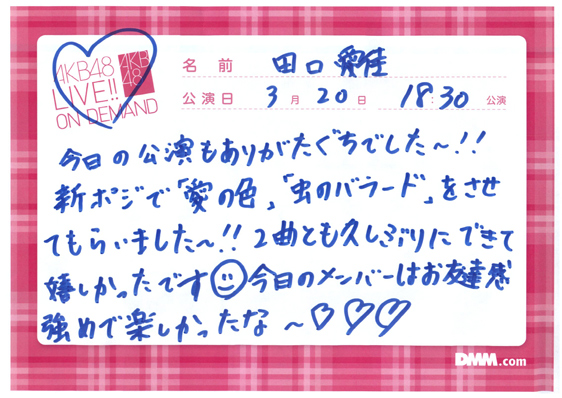 AKB48
LIVE!!
ON DEMAND
AKB
48
名前 田口愛佳
公演日 3月20日 18:30 公演
今日の公演もありがたぐちでした〜!!
新ポジで「愛の色」「虫のバラード」をさせ
てもらいました〜!! 2曲とも久しぶりにできて
嬉しかったです 今日のメンバーはお友達感
強めで楽しかったな〜♡♡♡
DMM.com